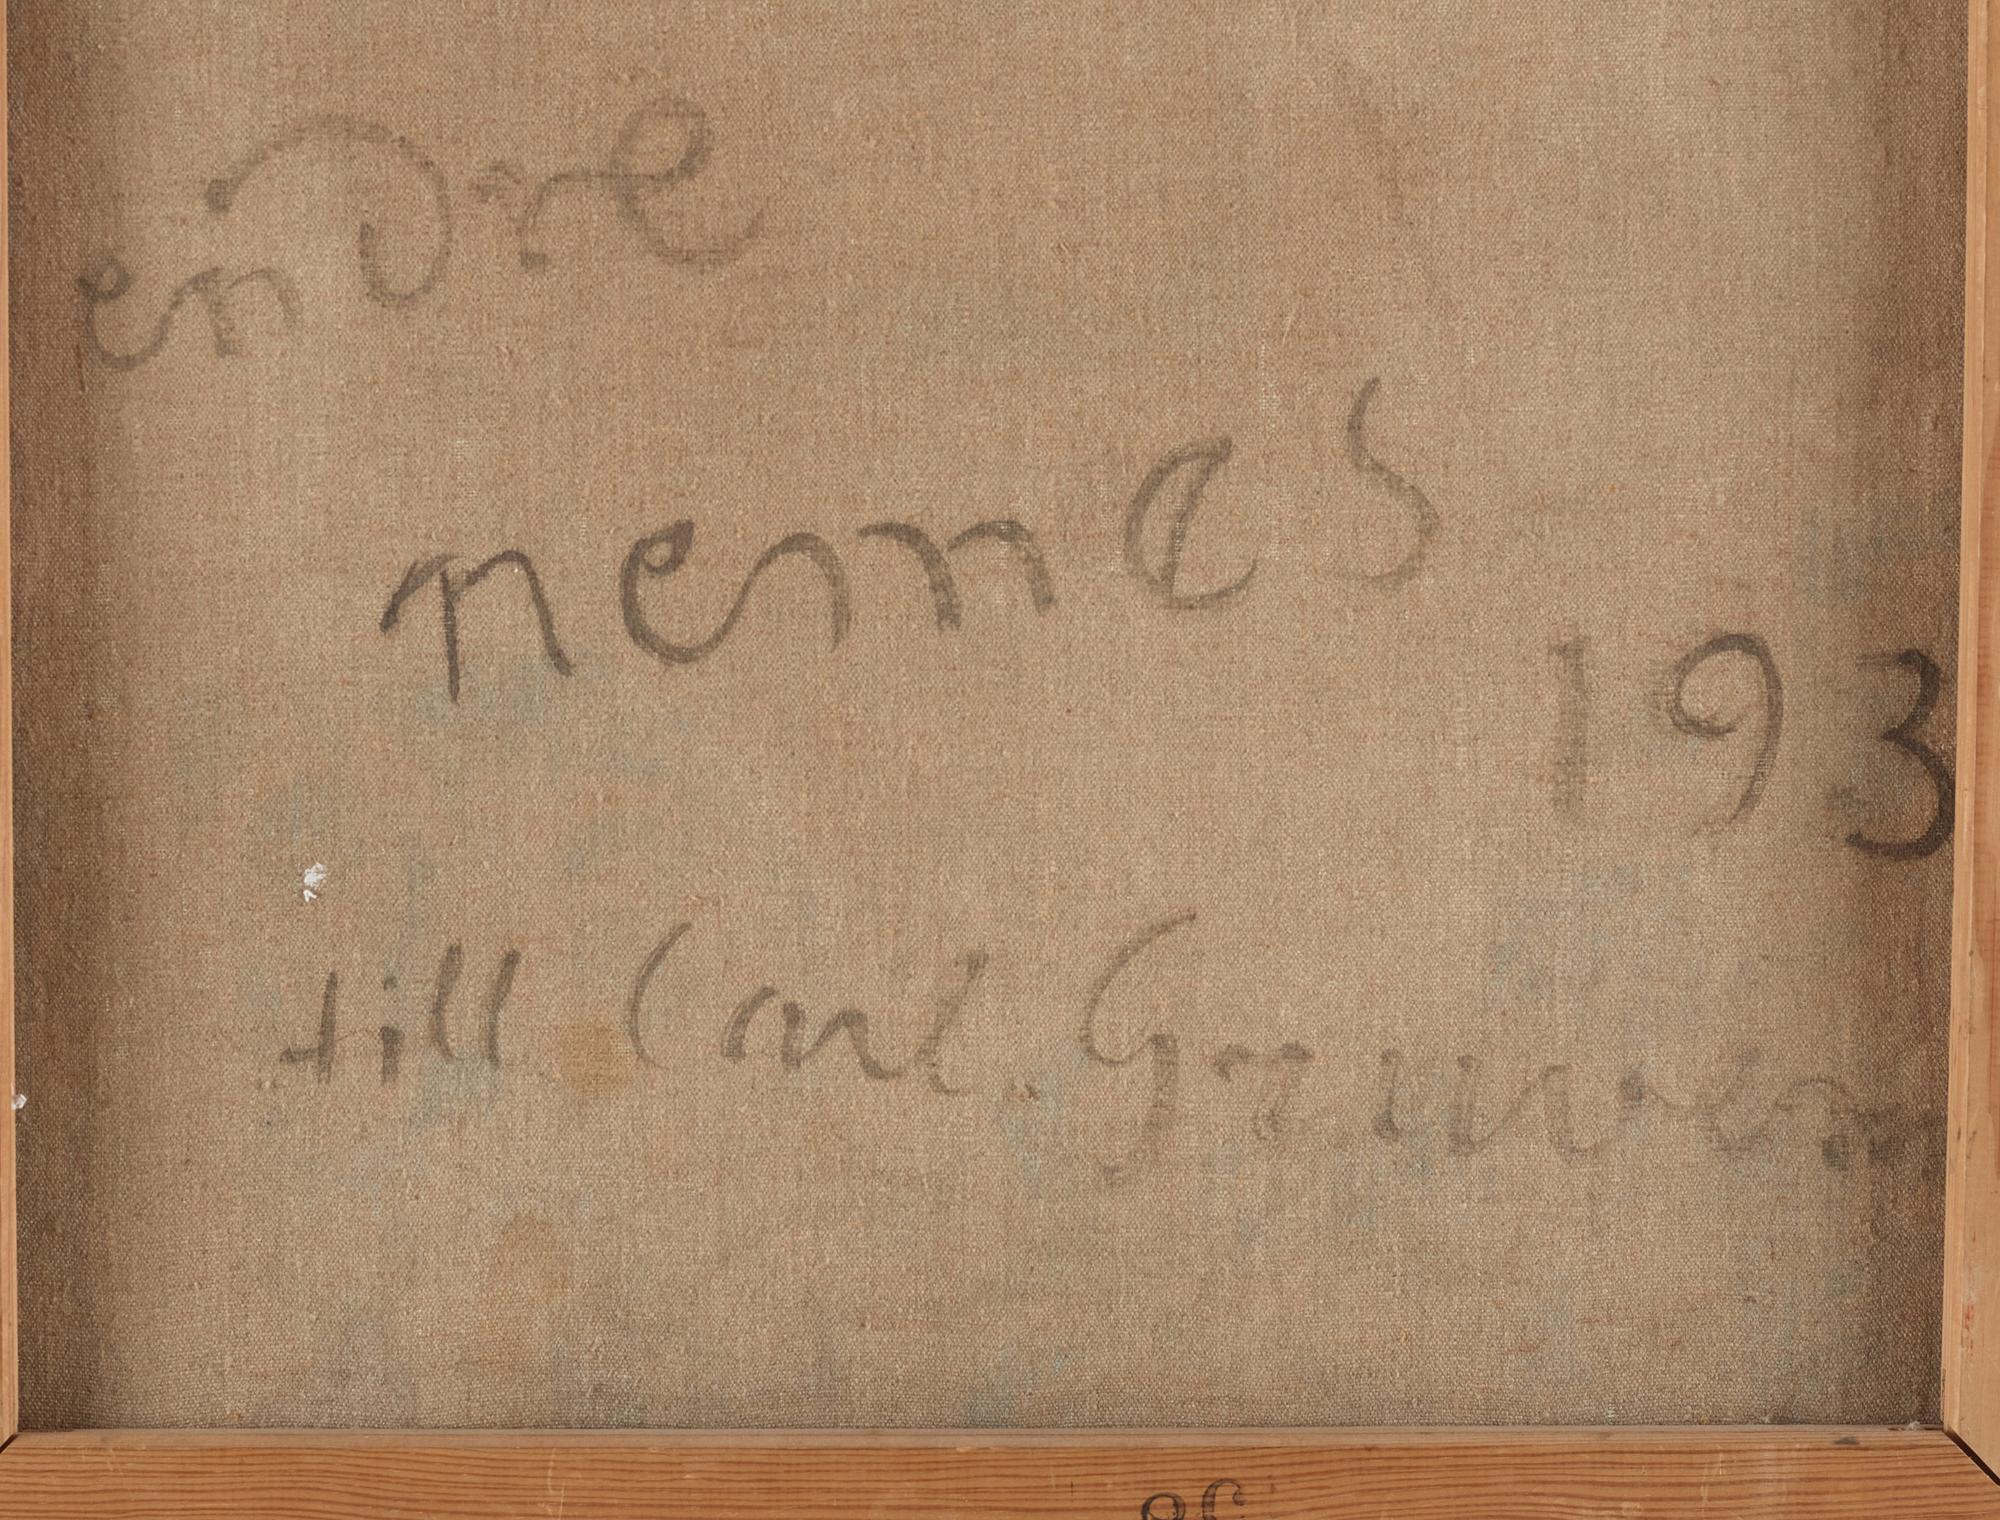 enDre
nemes
193
till Carl Gunnar